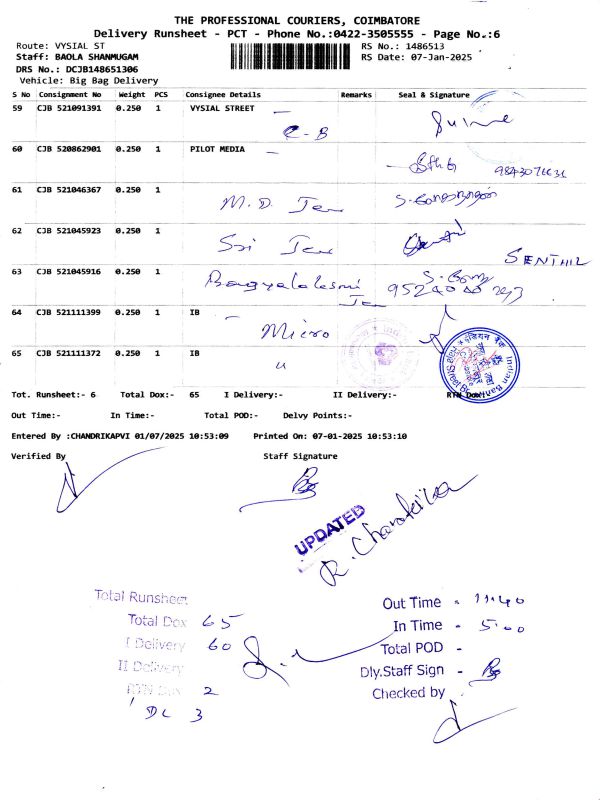 THE PROFESSIONAL COURIERS, COIMBATORE
Delivery Runsheet - PCT - Phone No.:0422-3505555 - Page No.:6
Route: VYSIAL ST
RS No.: 1486513
Staff: BAOLA SHANMUGAM
RS Date: 07-Jan-2025
DRS No.: DCJB148651306
Vehicle: Big Bag Delivery
S No Consignment No Weight PCS Consignee Details Remarks Seal & Signature
59 CJB 521091391 0.250 1 VYSIAL STREET
C-B
60 CJB 520862901 0.250 1 PILOT MEDIA
61 CJB 521046367 0.250 1
M.D.
62 CJB 521045923 0.250 1
Sri
SENTHIL
63 CJB 521045916 0.250 1
64 CJB 521111399 0.250 1 IB
Micro
65 CJB 521111372 0.250 1 IB
u
Indian Bank
Tot. Runsheet:- 6 Total Dox:- 65 I Delivery:- II Delivery:- RTN Dox:-
Out Time:- In Time:- Total POD:- Delvy Points:-
Entered By :CHANDRIKAPVI 01/07/2025 10:53:09 Printed On: 07-01-2025 10:53:10
Verified By Staff Signature
UPDATED
R. Chandrika
Total Runsheet
Total Dox 65
I Delivery 60
II Delivery
RTN Dox 2
DL 3
Out Time - 11.40
In Time - 5.00
Total POD -
Dly.Staff Sign -
Checked by